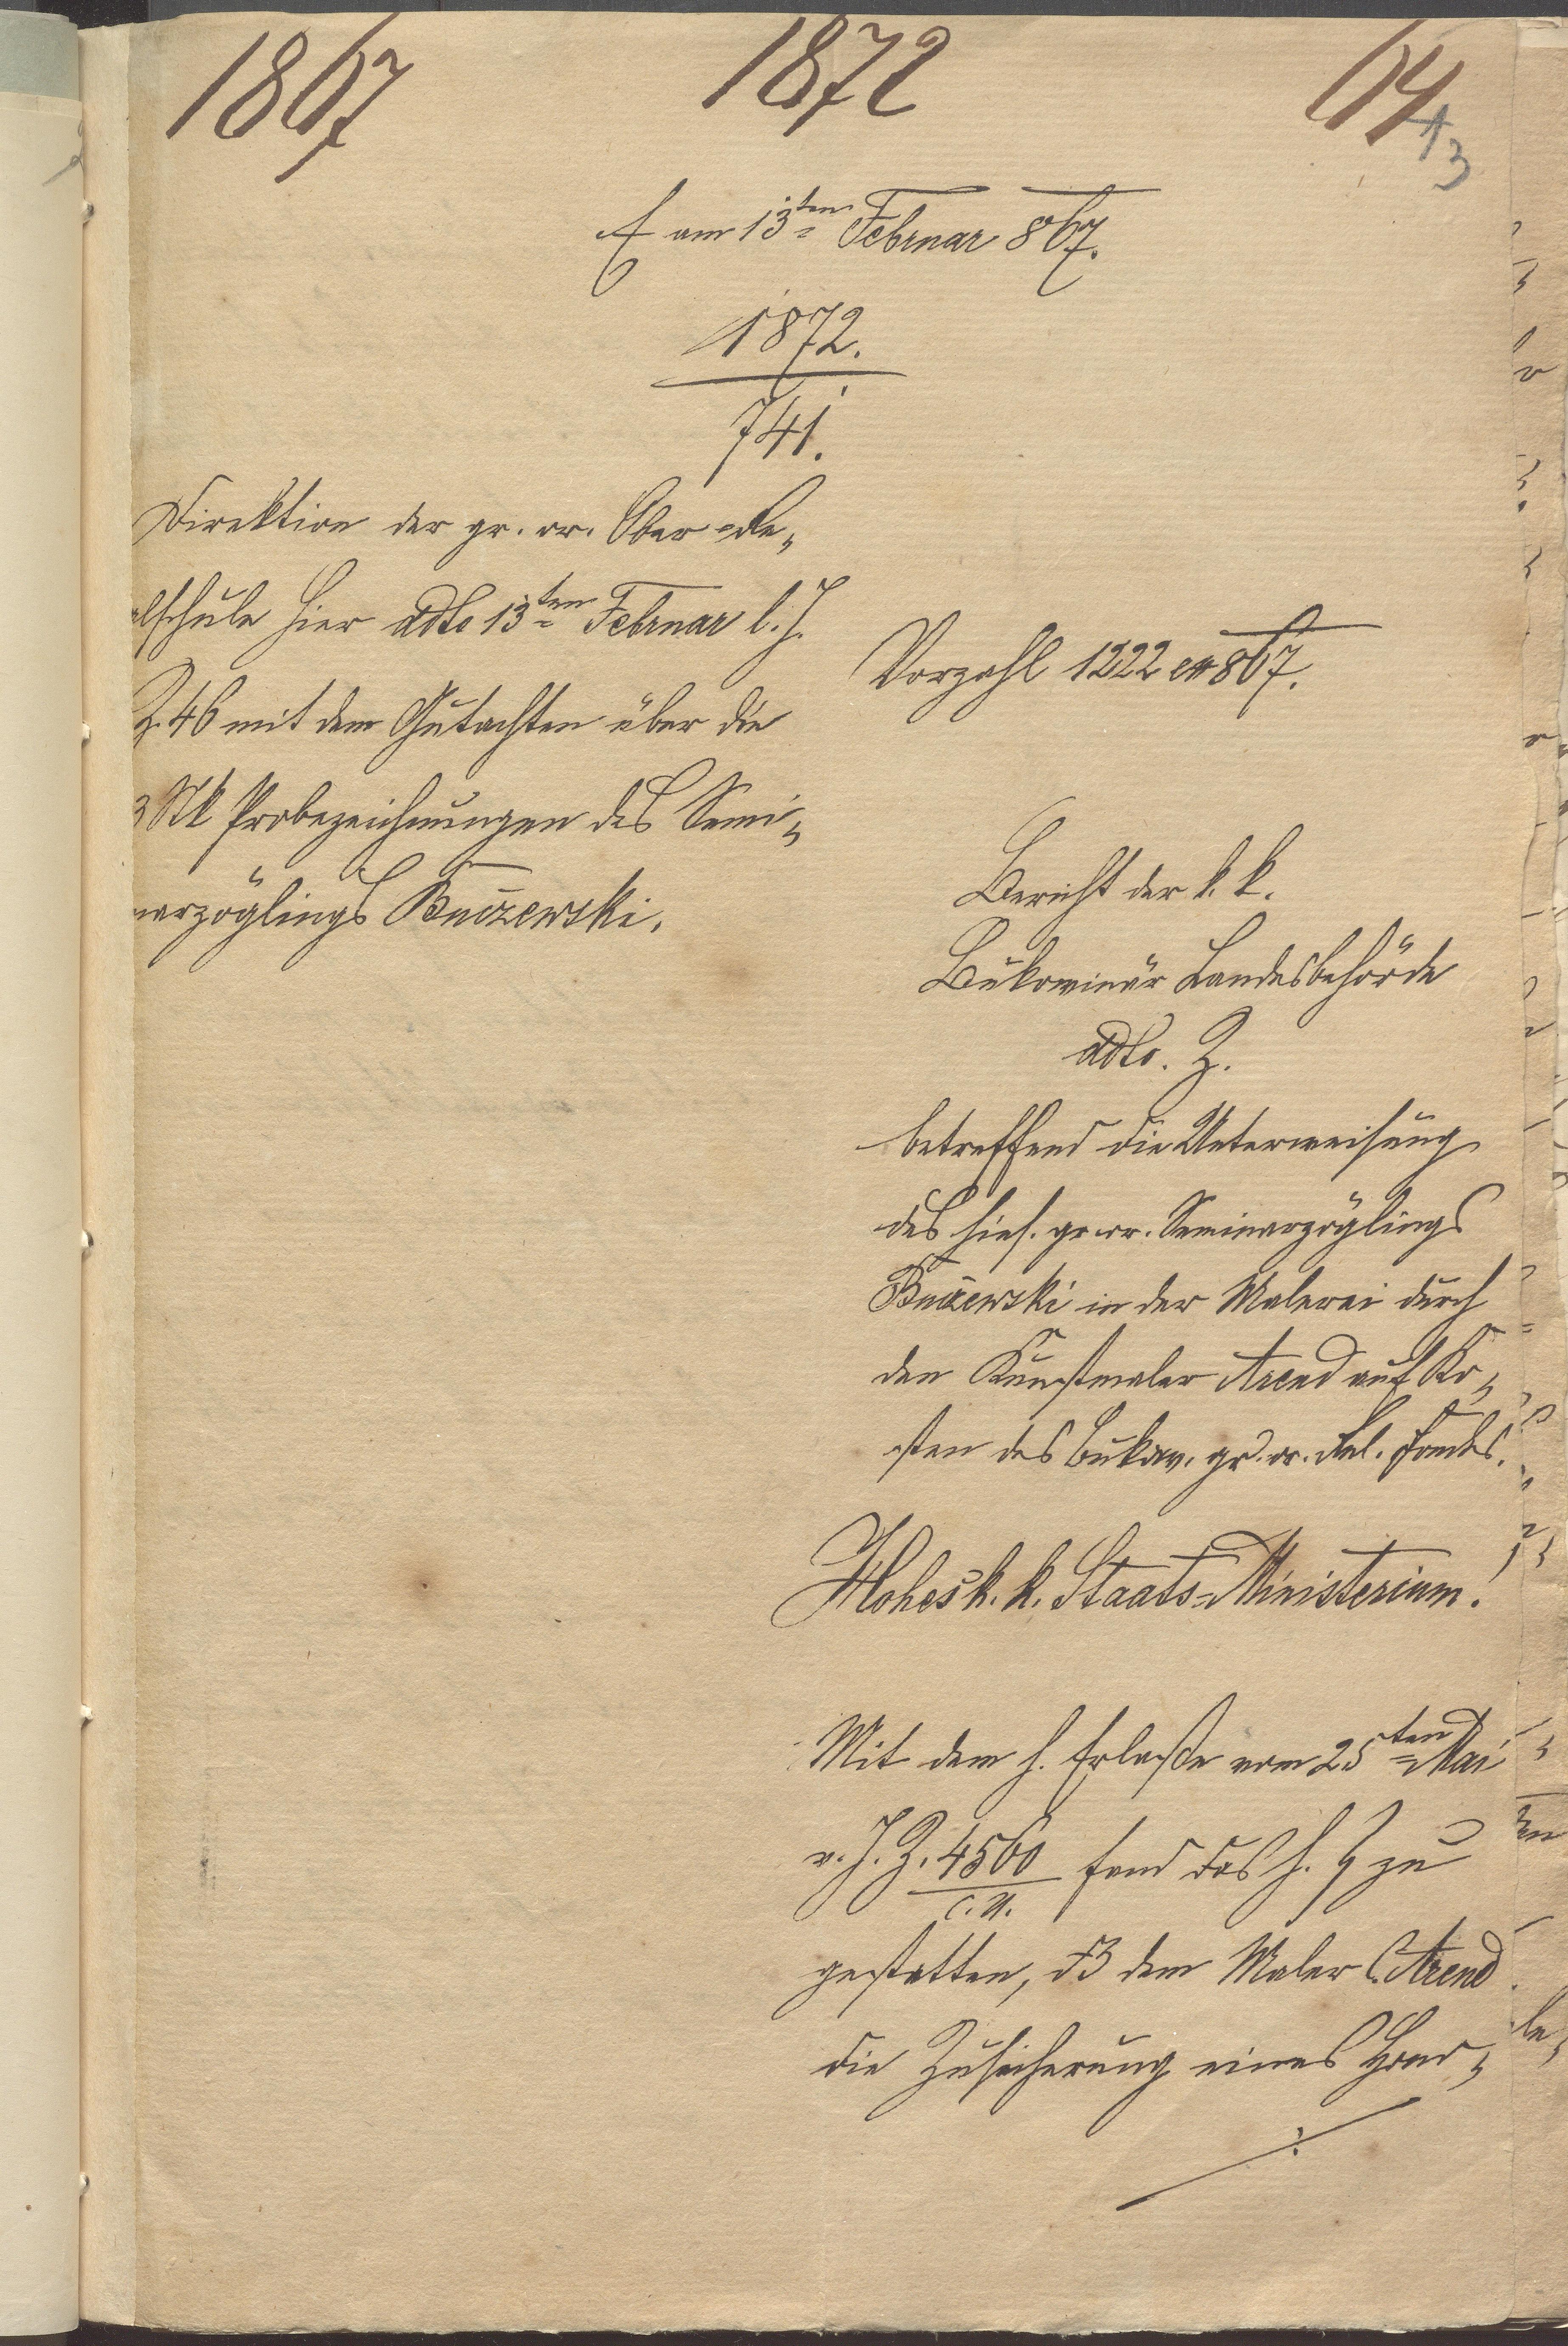 1867 1872 64
13
E am 13ten Februar 867.
1872.
741.
Direktion der gr. or. Ober-Re-
alschule hier ddto 13ten Februar l. J.
Z. 46 mit dem Gutachten über die
3 Stk Probezeichnungen des Semi-
narzöglings Buczewski.
Vorzahl 1222 ex 867.
Bericht der k. k.
Bukowinär Landesbehörde
ddto. Z.
betreffend die Unterweisung
des hies. gr. or. Seminarzöglings
Buczewski in der Malerei durch
den Kunstmaler Arend auf Ko-
sten des bukow. gr. or. Rel. Fondes.
Hohes k. k. Staats-Ministerium!
Mit dem h. Erlaße vom 25ten Mai
v. J. Z. 4560 fand das h. zu
C. U.
gestatten, dß dem Maler C. Arend
die Zusicherung eines Hono-
./.